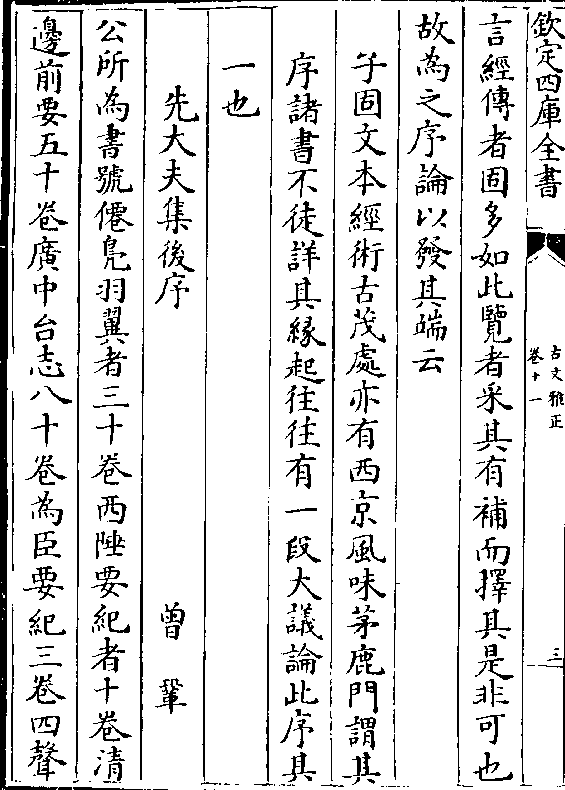 欽定四庫全書
古文雅正
卷十一
三
言經傳者固多如此覽者采其有補而擇其是非可也
故為之序論以發其端云
子固文本經術古茂處亦有西京風味茅鹿門謂其
序諸書不徒詳其緣起往往有一段大議論此序其
一也
先大夫集後序
曾鞏
公所為書號僊鳧羽翼者三十卷西陲要紀者十卷清
邊前要五十卷廣中台志八十卷為臣要紀三卷四聲